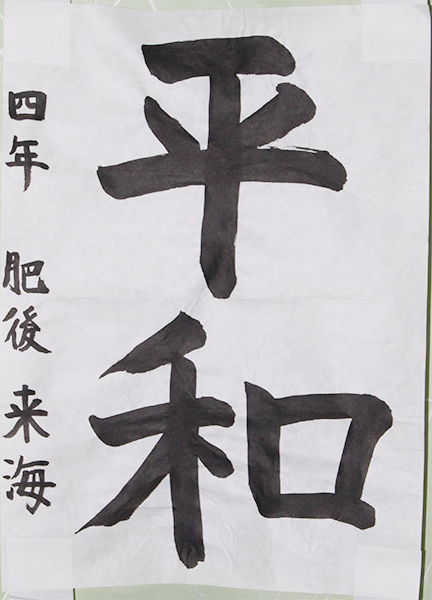 平和
四年 肥後 来海